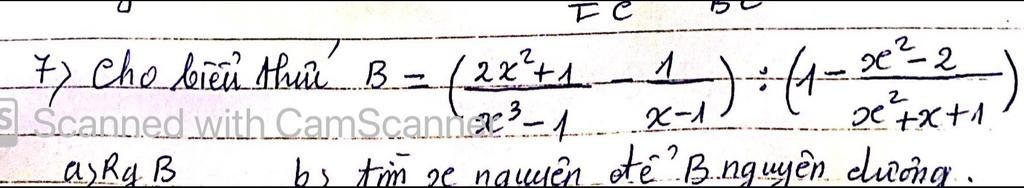 IC BC
7) Cho biểu thức B = (2x²+1 / x³-1 - 1 / x-1) : (1 - x²-2 / x²+x+1)
S Scanned with CamScanner
a, Rg B b, tìm x nguyên để B nguyên dương.